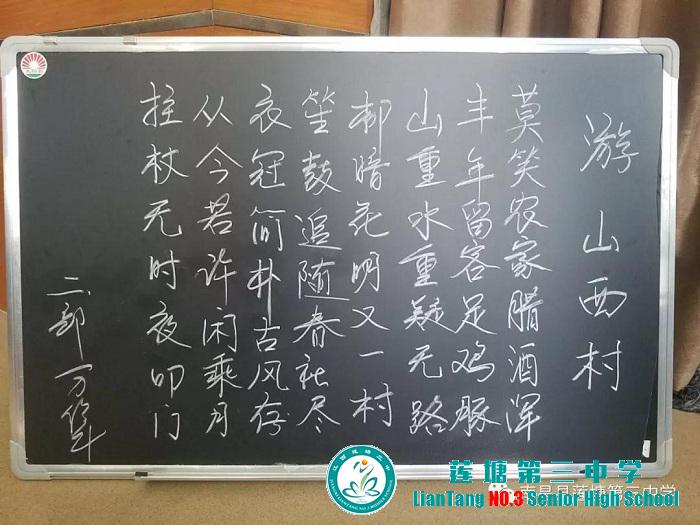 游山西村
莫笑农家腊酒浑
丰年留客足鸡豚
山重水重疑无路
柳暗花明又一村
笙鼓追随春社尽
衣冠简朴古风存
从今若许闲乘月
拄杖无时夜叩门
二部 万
莲塘第三中学
LianTang NO.3 Senior High School
南昌县莲塘第三中学